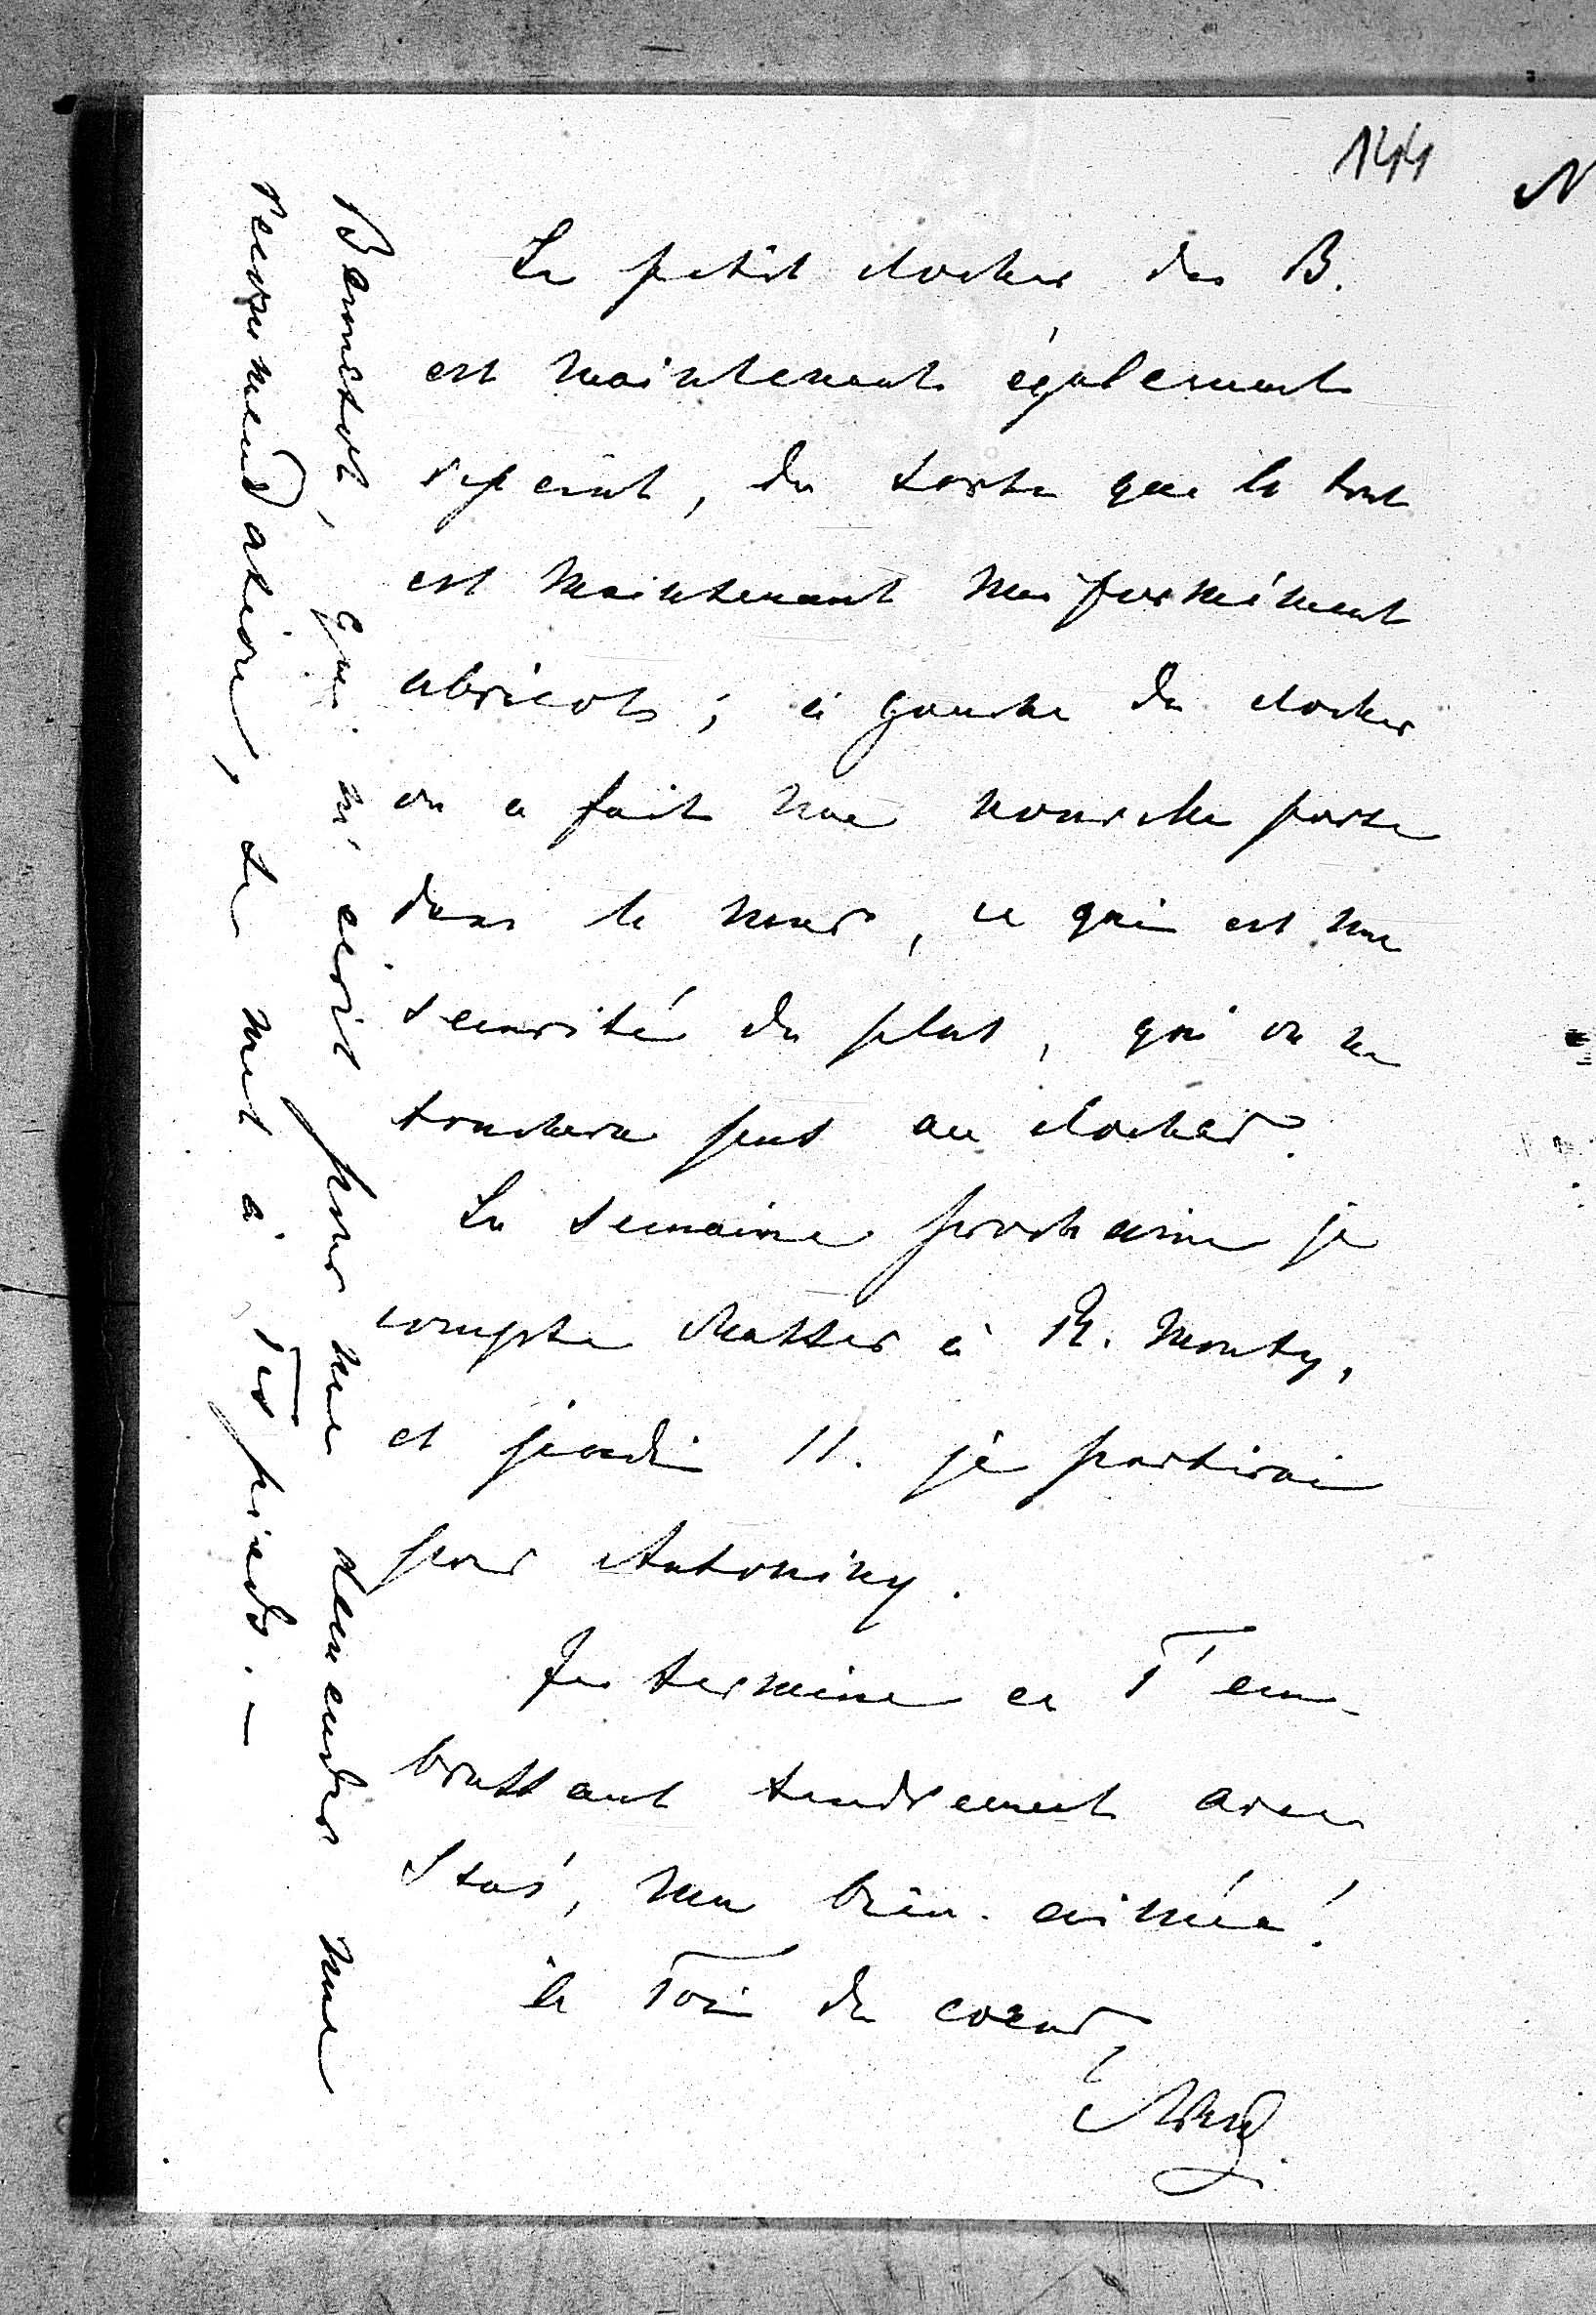 144
N
Le petit clocher des B.
est maintenant également
repeint, de sorte que le tout
est maintenant uniformément
abricots; à gauche du clocher
on a fait une nouvelle porte
dans le mur, ce qui est une
sécurité de plus, qu'on ne
touchera pas au clocher.
La semaine prochaine je
compte chasser à R. Monty,
et jeudi 11. je partirai
pour Antoniny.
Je termine en T'em-
brassant tendrement avec
Staś, ma bien-aimée!
à Toi de coeur,
Bennetot, qui m'écrit pour me demander une
recommendation, se met à Tes pieds. –